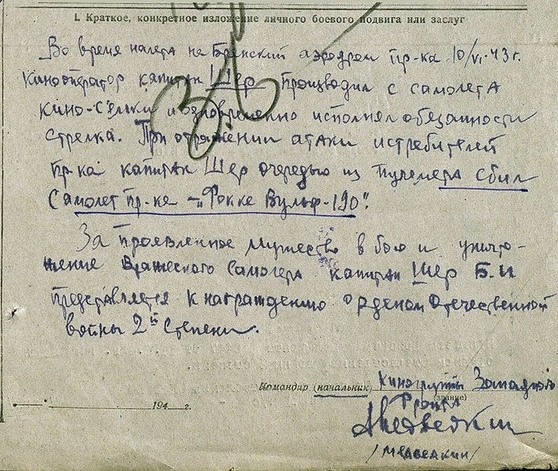 I. Краткое, конкретное изложение личного боевого подвига или заслуг
Во время налета на Брянский аэродром пр-ка 10/VI-43 г.
Кинооператор капитан Шер производил с самолета
кино-с'емки и одновременно исполнял обязанности
стрелка. При отражении атаки истребителей
пр-ка капитан Шер очередью из пулемета сбил
самолет пр-ка – „Фокке Вульф-190".
За проявленное мужество в бою и уничто-
жение вражеского самолета капитан Шер Б.И
представляется к награждению орденом Отечественной
войны 2й степени.
Командир (начальник) Киногруппы Западного
Фронта
(звание)
194 г.
Медведкин
/Медведкин/